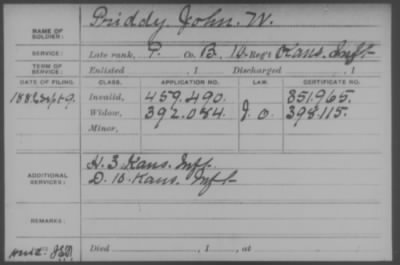 NAME OF SOLDIER: Priddy, John W.
SERVICE: Late rank, P. Co. B, 10 Reg't Kans. Inft
TERM OF SERVICE: Enlisted , 1 Discharged , 1
DATE OF FILING. CLASS. APPLICATION NO. LAW. CERTIFICATE NO.
1882 Sept 9. Invalid, 459.490. 351.965.
Widow, 392.084. J.O. 398.115.
Minor,
ADDITIONAL SERVICES: H. 3 Kans. Inft.
D. 10. Kans. Inft
REMARKS:
Died , 1 , at